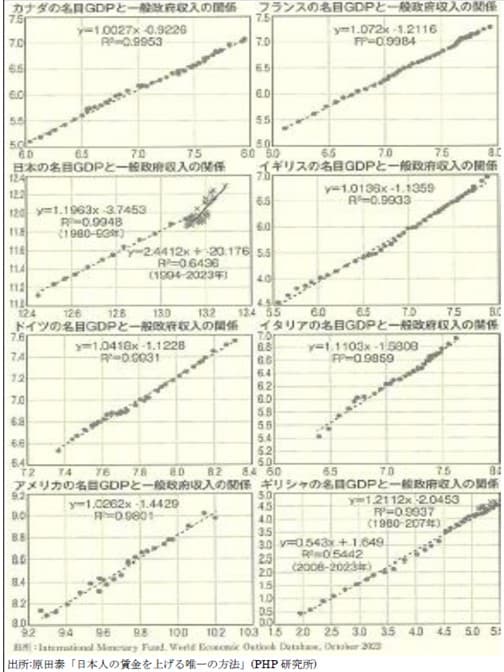 カナダの名目GDPと一般政府収入の関係
フランスの名目GDPと一般政府収入の関係
7.5
7.0
6.5
6.0
5.5
5.0
y=1.0027x -0.9226
R²=0.9953
6.0 6.5 7.0 7.5 8.0
7.5
7.0
6.5
6.0
5.5
5.0
y=1.072x -1.2116
R²=0.9984
6.0 6.5 7.0 7.5 8.0
日本の名目GDPと一般政府収入の関係
イギリスの名目GDPと一般政府収入の関係
12.4
12.2
12.0
11.8
11.6
11.4
11.2
11.0
y=1.1963x -3.7453
R²=0.9948
(1980-93年)
y=2.4412x + -20.176
R²=0.6436
(1994-2023年)
12.4 12.6 12.8 13.0 13.2 13.4
7.0
6.5
6.0
5.5
5.0
4.5
y=1.0136x -1.1359
R²=0.9933
5.5 6.0 6.5 7.0 7.5 8.0
ドイツの名目GDPと一般政府収入の関係
イタリアの名目GDPと一般政府収入の関係
7.6
7.4
7.2
7.0
6.8
6.6
6.4
y=1.0418x -1.1228
R²=0.9931
7.2 7.4 7.6 7.8 8.0 8.2 8.4
7.0
6.8
6.6
6.4
6.2
6.0
5.8
5.6
5.4
5.2
5.0
y=1.1103x -1.5808
R²=0.9859
6.0 6.5 7.0 7.5 8.0
アメリカの名目GDPと一般政府収入の関係
ギリシャの名目GDPと一般政府収入の関係
9.2
9.0
8.8
8.6
8.4
8.2
8.0
y=1.0262x -1.4429
R²=0.9801
9.2 9.4 9.6 9.8 10.0 10.2 10.4
5.0
4.5
4.0
3.5
3.0
2.5
2.0
1.5
1.0
0.5
0.0
y=1.2112x -2.0453
R²=0.9937
(1980-207年)
y=0.543x + 1.649
R²=0.5442
(2008-2023年)
1.5 2.0 2.5 3.0 3.5 4.0 4.5 5.0 5.5
出所：International Monetary Fund, World Economic Outlook Database, October 2023
出所:原田泰「日本人の賃金を上げる唯一の方法」(PHP 研究所)